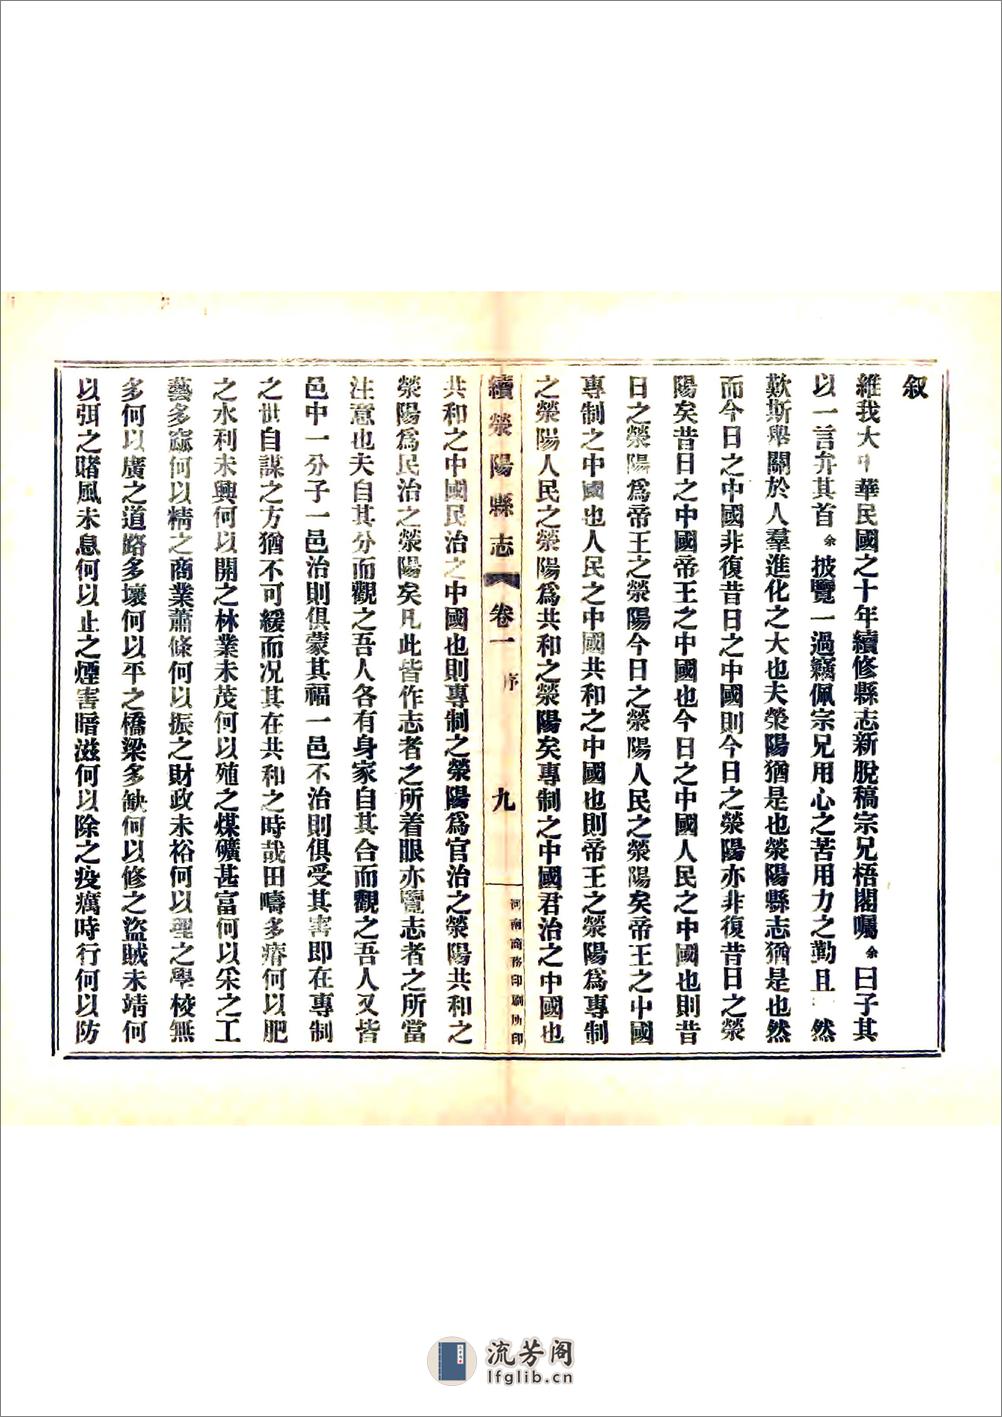 叙
維我大中華民國之十年續修縣志新脫稿宗兄梧閣囑余曰子其
以一言弁其首余披覽一過竊佩宗兄用心之苦用力之勤且然
歎斯舉關於人羣進化之大也夫滎陽猶是也滎陽縣志猶是也然
而今日之中國非復昔日之中國則今日之滎陽亦非復昔日之滎
陽矣昔日之中國帝王之中國也今日之中國人民之中國也則昔
日之滎陽爲帝王之滎陽今日之滎陽人民之滎陽矣帝王之中國
專制之中國也人民之中國共和之中國也則帝王之滎陽爲專制
之滎陽人民之滎陽爲共和之滎陽矣專制之中國君治之中國也
續滎陽縣志 卷一 序 九 河南商務印刷所印
共和之中國民治之中國也則專制之滎陽爲官治之滎陽共和之
滎陽爲民治之滎陽矣凡此皆作志者之所着眼亦覽志者之所當
注意也夫自其分而觀之吾人各有身家自其合而觀之吾人又皆
邑中一分子一邑治則俱蒙其福一邑不治則俱受其害即在專制
之世自謀之方猶不可緩而况其在共和之時哉田疇多瘠何以肥
之水利未興何以開之林業未茂何以殖之煤礦甚富何以采之工
藝多窳何以精之商業蕭條何以振之財政未裕何以理之學校無
多何以廣之道路多壞何以平之橋梁多缺何以修之盜賊未靖何
以弭之賭風未息何以止之煙害暗滋何以除之疫癘時行何以防
流芳阁
lfglib.cn